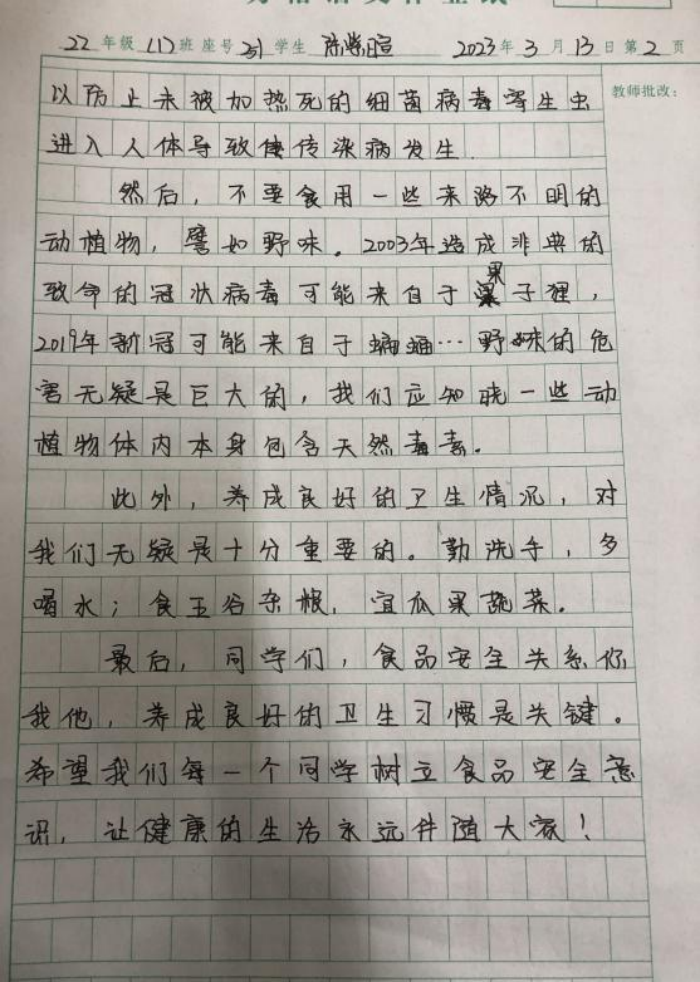 22年级(1)班座号 学生 2023年3月13日第2页
教师批改:
以防止未被加热死的细菌病毒寄生虫
进入人体导致使传染病发生.
然后,不要食用一些来路不明的
动植物,譬如野味。2003年造成非典的
致命的冠状病毒可能来自于果子狸,
2019年新冠可能来自于蝙蝠…野味的危
害无疑是巨大的,我们应知晓一些动
植物体内本身包含天然毒素。
此外,养成良好的卫生情况,对
我们无疑是十分重要的。勤洗手,多
喝水;食五谷杂粮,宜瓜果蔬菜。
最后,同学们,食品安全关系你
我他,养成良好的卫生习惯是关键。
希望我们每一个同学树立食品安全意
识,让健康的生活永远伴随大家!